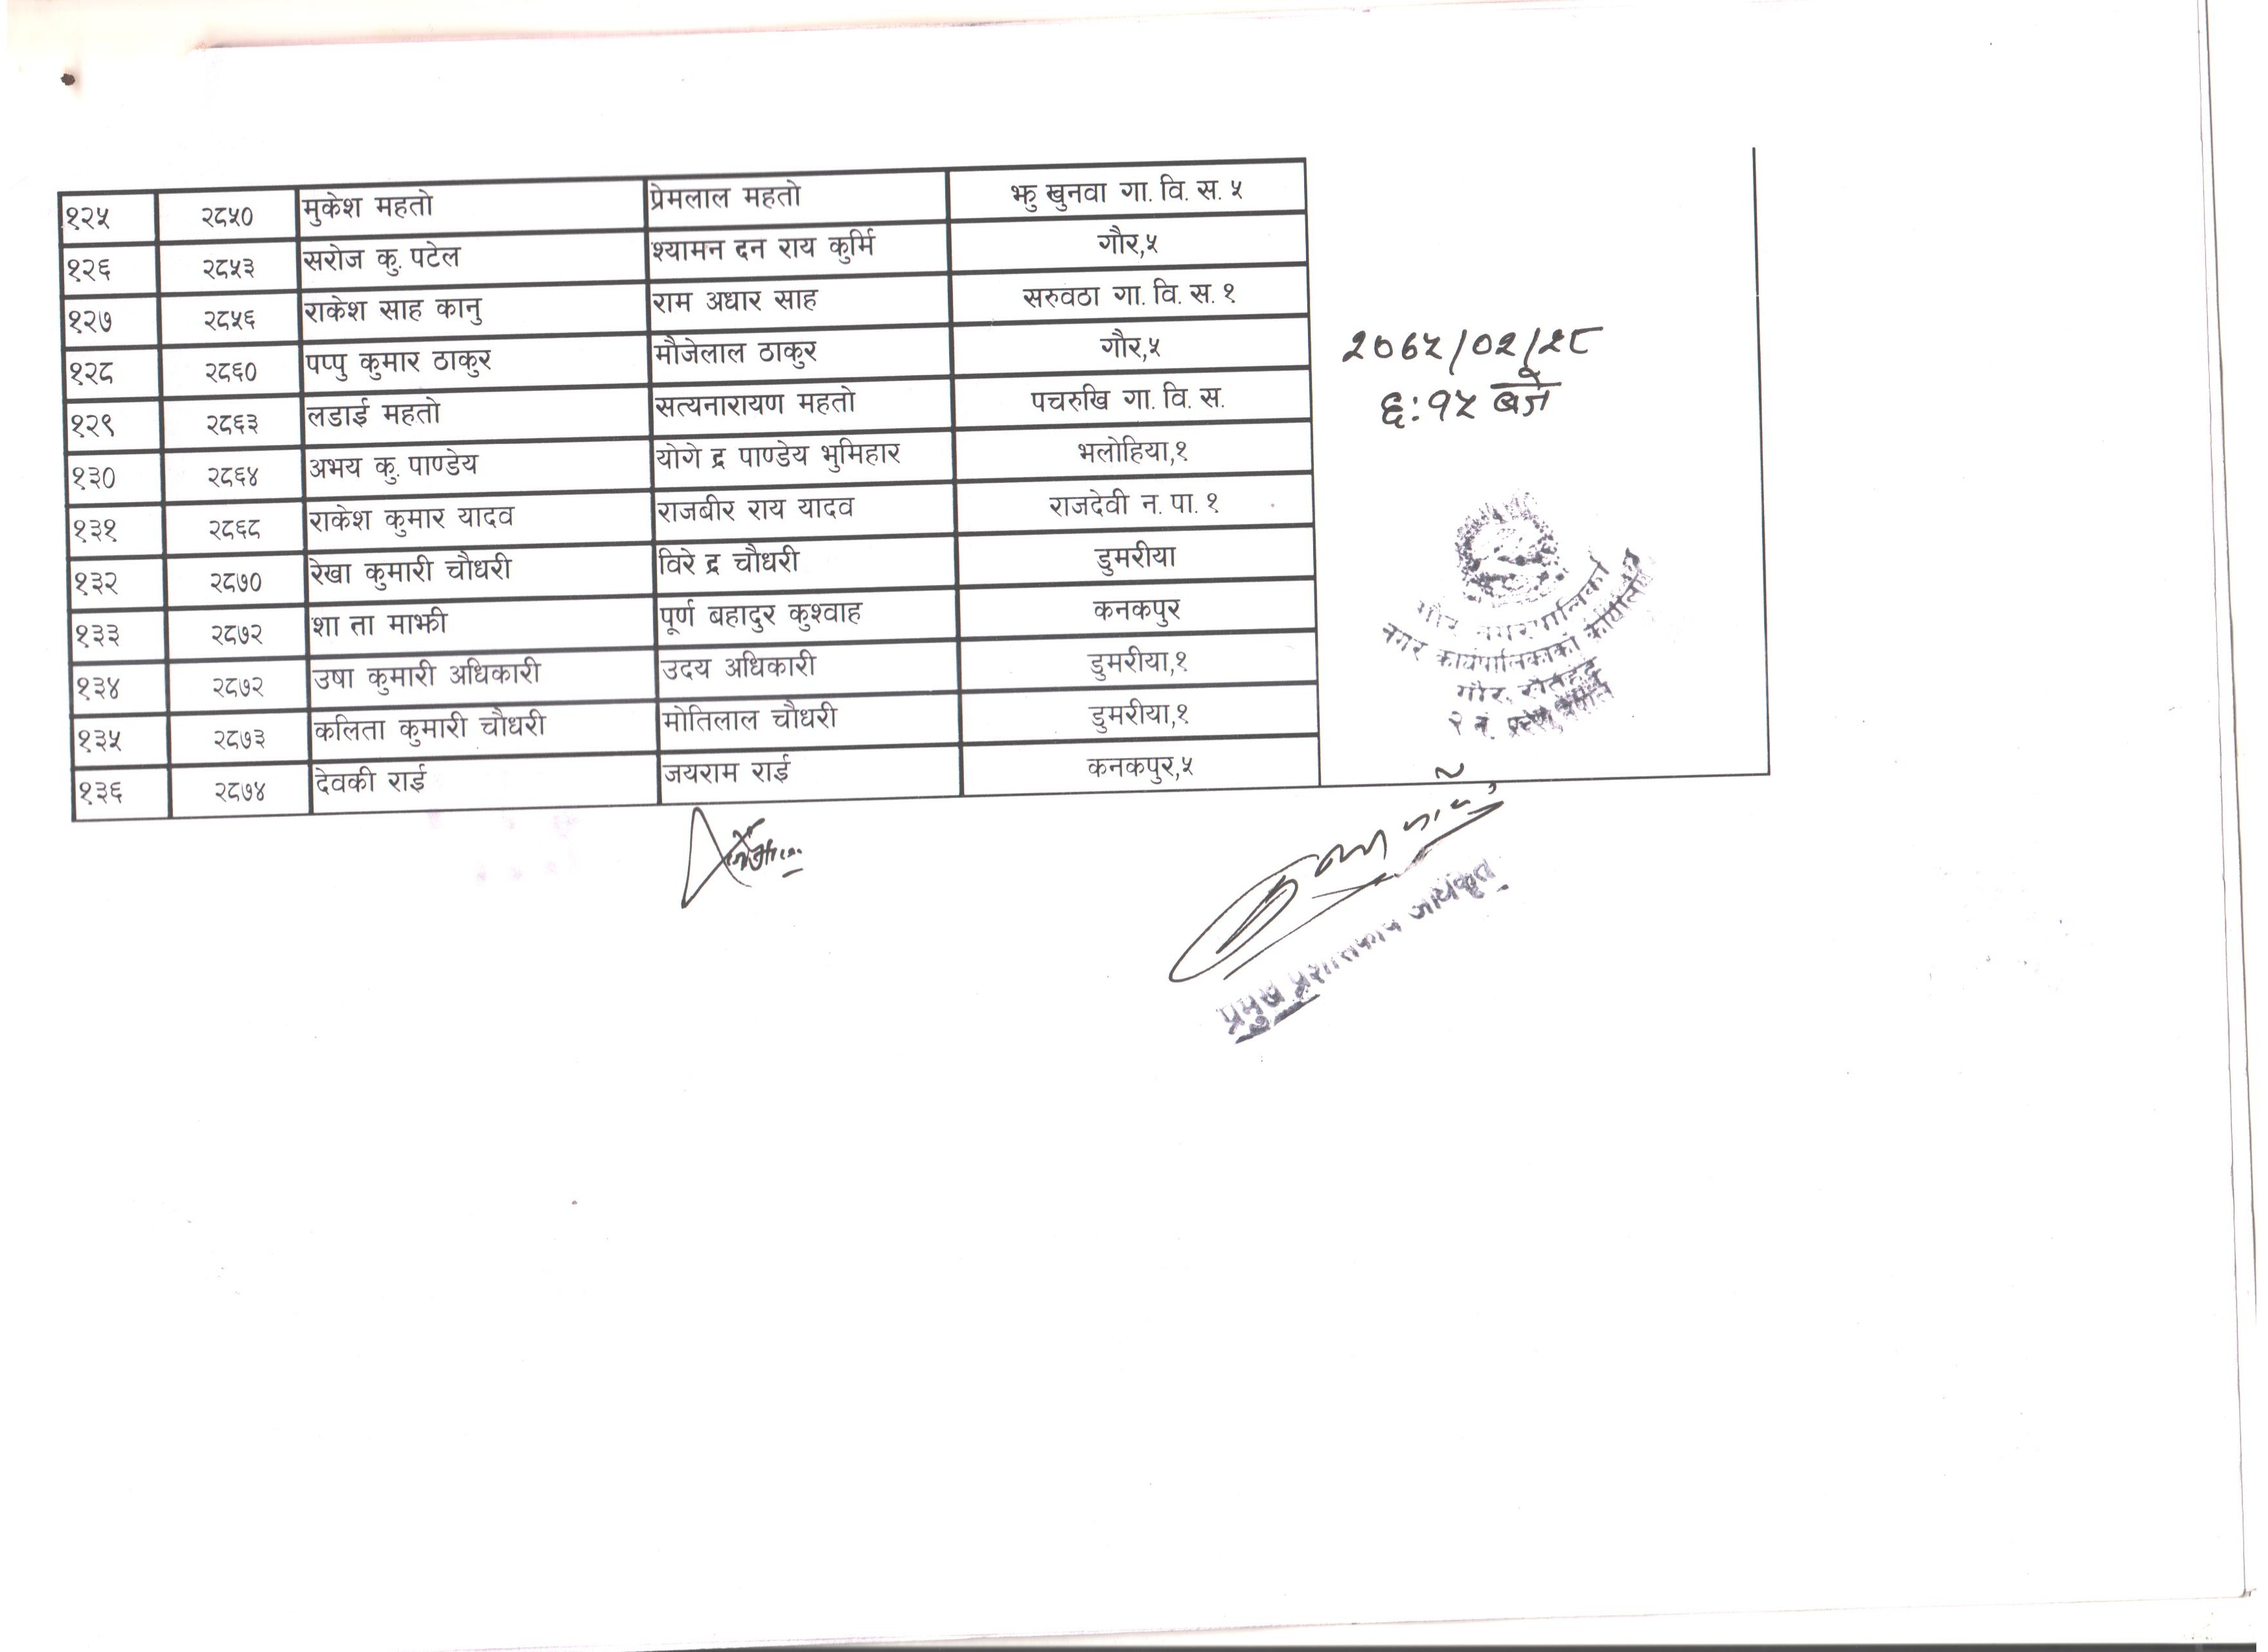 १२५ २८५० मुकेश महतो प्रेमलाल महतो झु खुनवा गा. वि. स. ५
१२६ २८५३ सरोज कु. पटेल श्यामन दन राय कुर्मि गौर,५
१२७ २८५६ राकेश साह कानु राम अधार साह सरुवठा गा. वि. स. १
१२८ २८६० पप्पु कुमार ठाकुर मौजेलाल ठाकुर गौर,५
१२९ २८६३ लडाई महतो सत्यनारायण महतो पचरुखि गा. वि. स.
१३० २८६४ अभय कु. पाण्डेय योगे द्र पाण्डेय भुमिहार भलोहिया,१
१३१ २८६८ राकेश कुमार यादव राजबीर राय यादव राजदेवी न. पा. १
१३२ २८७० रेखा कुमारी चौधरी विरे द्र चौधरी डुमरीया
१३३ २८७२ शा ता माझी पूर्ण बहादुर कुश्वाह कनकपुर
१३४ २८७२ उषा कुमारी अधिकारी उदय अधिकारी डुमरीया,१
१३५ २८७३ कलिता कुमारी चौधरी मोतिलाल चौधरी डुमरीया,१
१३६ २८७४ देवकी राई जयराम राई कनकपुर,५
६:१५ बजे
गौर नगरपालिका
नगर कार्यपालिकाको कार्यालय
गौर, रौतहट
२ नं. प्रदेश, नेपाल
प्रमुख प्रशासकीय अधिकृत